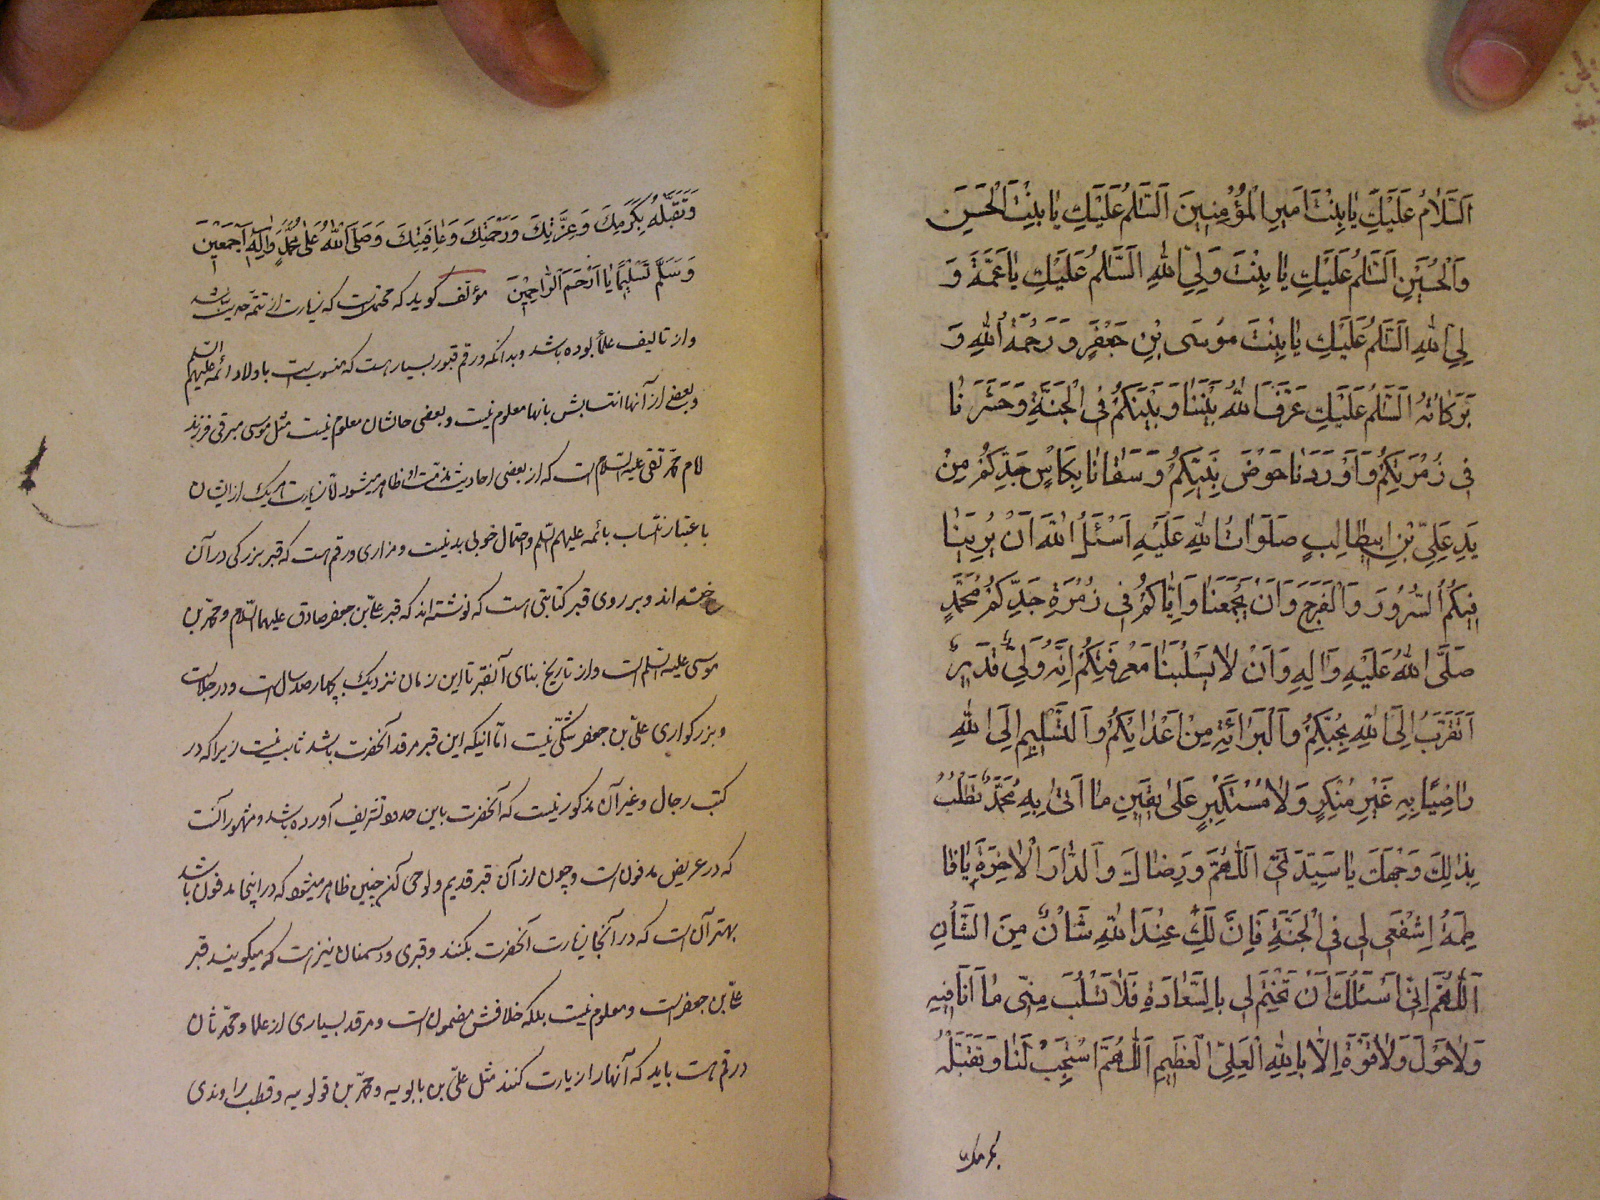 اَلسَّلاٰمُ عَلَيْكِ يٰا بِنْتَ اَميرِ الْمُؤْمِنينَ اَلسَّلٰمُ عَلَيْكِ يٰا بِنْتَ الْحَسَنِ
وَالْحُسَيْنِ اَلسَّلٰمُ عَلَيْكِ يٰا بِنْتَ وَلِيِّ اللهِ اَلسَّلٰمُ عَلَيْكِ يٰا عَمَّةَ وَ
لِيِّ اللهِ اَلسَّلٰمُ عَلَيْكِ يٰا بِنْتَ مُوسَى بْنِ جَعْفَرٍ وَ رَحْمَةُ اللهِ وَ
بَرَكٰاتُهُ اَلسَّلٰمُ عَلَيْكِ عَرَّفَ اللهُ بَيْنَنٰا وَ بَيْنَكُمْ فِى الْجَنَّةِ وَ حَشَرَ نٰا
فى زُمْرَتِكُمْ وَ اَوْرَدَنٰا حَوْضَ نَبِيِّكُمْ وَ سَقٰانٰا بِكَأْسِ جَدِّكُمْ مِنْ
يَدِ عَلِيِّ بْنِ ابيطٰالِبٍ صَلَوٰاتُ اللهِ عَلَيْهِ اَسْئَلُ اللهَ اَنْ يُرِيَنٰا
فيكُمُ السُّرُورَ وَ الْفَرَجَ وَ اَنْ يَجْمَعَنٰا وَ اِيّٰاكُمْ فى زُمْرَةِ جَدِّكُمْ مُحَمَّدٍ
صَلَّى اللهُ عَلَيْهِ وَ اٰلِهِ وَ اَنْ لاٰ يَسْلُبَنٰا مَعْرِفَتَكُمْ اِنَّهُ وَلِيٌّ قَديرٌ
اَتَقَرَّبُ اِلَى اللهِ بِحُبِّكُمْ وَ الْبَرٰائَةِ مِنْ اَعْدٰائِكُمْ وَ التَّسْليمِ اِلَى اللهِ
رٰاضِيًا بِهِ غَيْرَ مُنْكِرٍ وَ لاٰ مُسْتَكْبِرٍ عَلىٰ يَقينِ مٰا اَتىٰ بِهِ مُحَمَّدٌ نَطْلُبُ
بِذٰلِكَ وَجْهَكَ يٰا سَيِّدى اَللّٰهُمَّ وَ رِضٰاكَ وَ الدّٰارَ الْاٰخِرَةِ يٰا فٰا
طِمَةُ اِشْفَعى لى فِى الْجَنَّةِ فَاِنَّ لَكِ عِنْدَ اللهِ شَاْنٌ مِنَ الشَّأْنِ
اَللّٰهُمَّ اِنّى اَسْئَلُكَ اَنْ تَخْتِمَ لى بِالسَّعٰادَةِ فَلاٰ تَسْلُبْ مِنّى مٰا اَنَا فيهِ
وَلاٰ حَوْلَ وَلاٰ قُوَّةَ اِلّاٰ بِاللهِ الْعَلِىِّ الْعَظيمِ اَللّٰهُمَّ اسْتَجِبْ لَنٰا وَ تَقَبَّلْهُ
بكرمك
وَ تَقَبَّلْهُ بِكَرَمِكَ وَ عِزَّتِكَ وَ رَحْمَتِكَ وَ عٰافِيَتِكَ وَ صَلَّى اللهُ عَلىٰ مُحَمَّدٍ وَ اٰلِهِ اَجْمَعينَ
وَ سَلَّمَ تَسْليمًا يٰا اَرْحَمَ الرّٰاحِمينَ مؤلف گويد كه محتمل است كه زيارت از تتمه حديث نباشد
و از تاليف علما بوده باشد و بدانكه در قم قبور بسيار هست كه منسوب است باولاد ائمه عليهم السلم
و بعضى از آنها انتسابش بانها معلوم نيست و بعضى حالشان معلوم نيست مثل موسى مبرقع فرزند
امام محمد تقى عليه السلام است كه از بعضى احاديث مذمت او ظاهر ميشود امّا زيارت هر يك از ايشان
باعتبار انتساب بائمه عليهم السلم و احتمال خوبى بد نيست و مزارى در قم هست كه قبر بزركى در آن
ساخته‌اند و بر روى قبر كتابتى است كه نوشته‌اند كه قبر على بن جعفر صادق عليهما السلام و محمد بن
موسى عليه السلم است و از تاريخ بناى آن قبر تا اين زمان نزديك بچهار صد سال است و در جلالت
و بزركوارى علىّ بن جعفر شكّى نيست امّا اينكه اين قبر مرقد آنحضرت باشد ثابت نيست زيرا كه در
كتب رجال و غير آن مذكور نيست كه آنحضرت باين حدود تشريف آورده باشد و مشهور آنست
كه در عريض مدفون است و چون از آن قبر قديم و لوحى كهنه چنين ظاهر ميشود كه در اينجا مدفون باشد
بهتر آن است كه در آنجا زيارت آنحضرت بكنند و قبرى در سمنان نيز است كه ميكويند قبر
على بن جعفر است و معلوم نيست بلكه خلافش مضمون است و مرقد بسيارى از علما و محدّثان
در قم هست بايد كه آنها را زيارت كنند مثل علىّ بن بابويه و محمّد بن قولويه و قطب راوندى